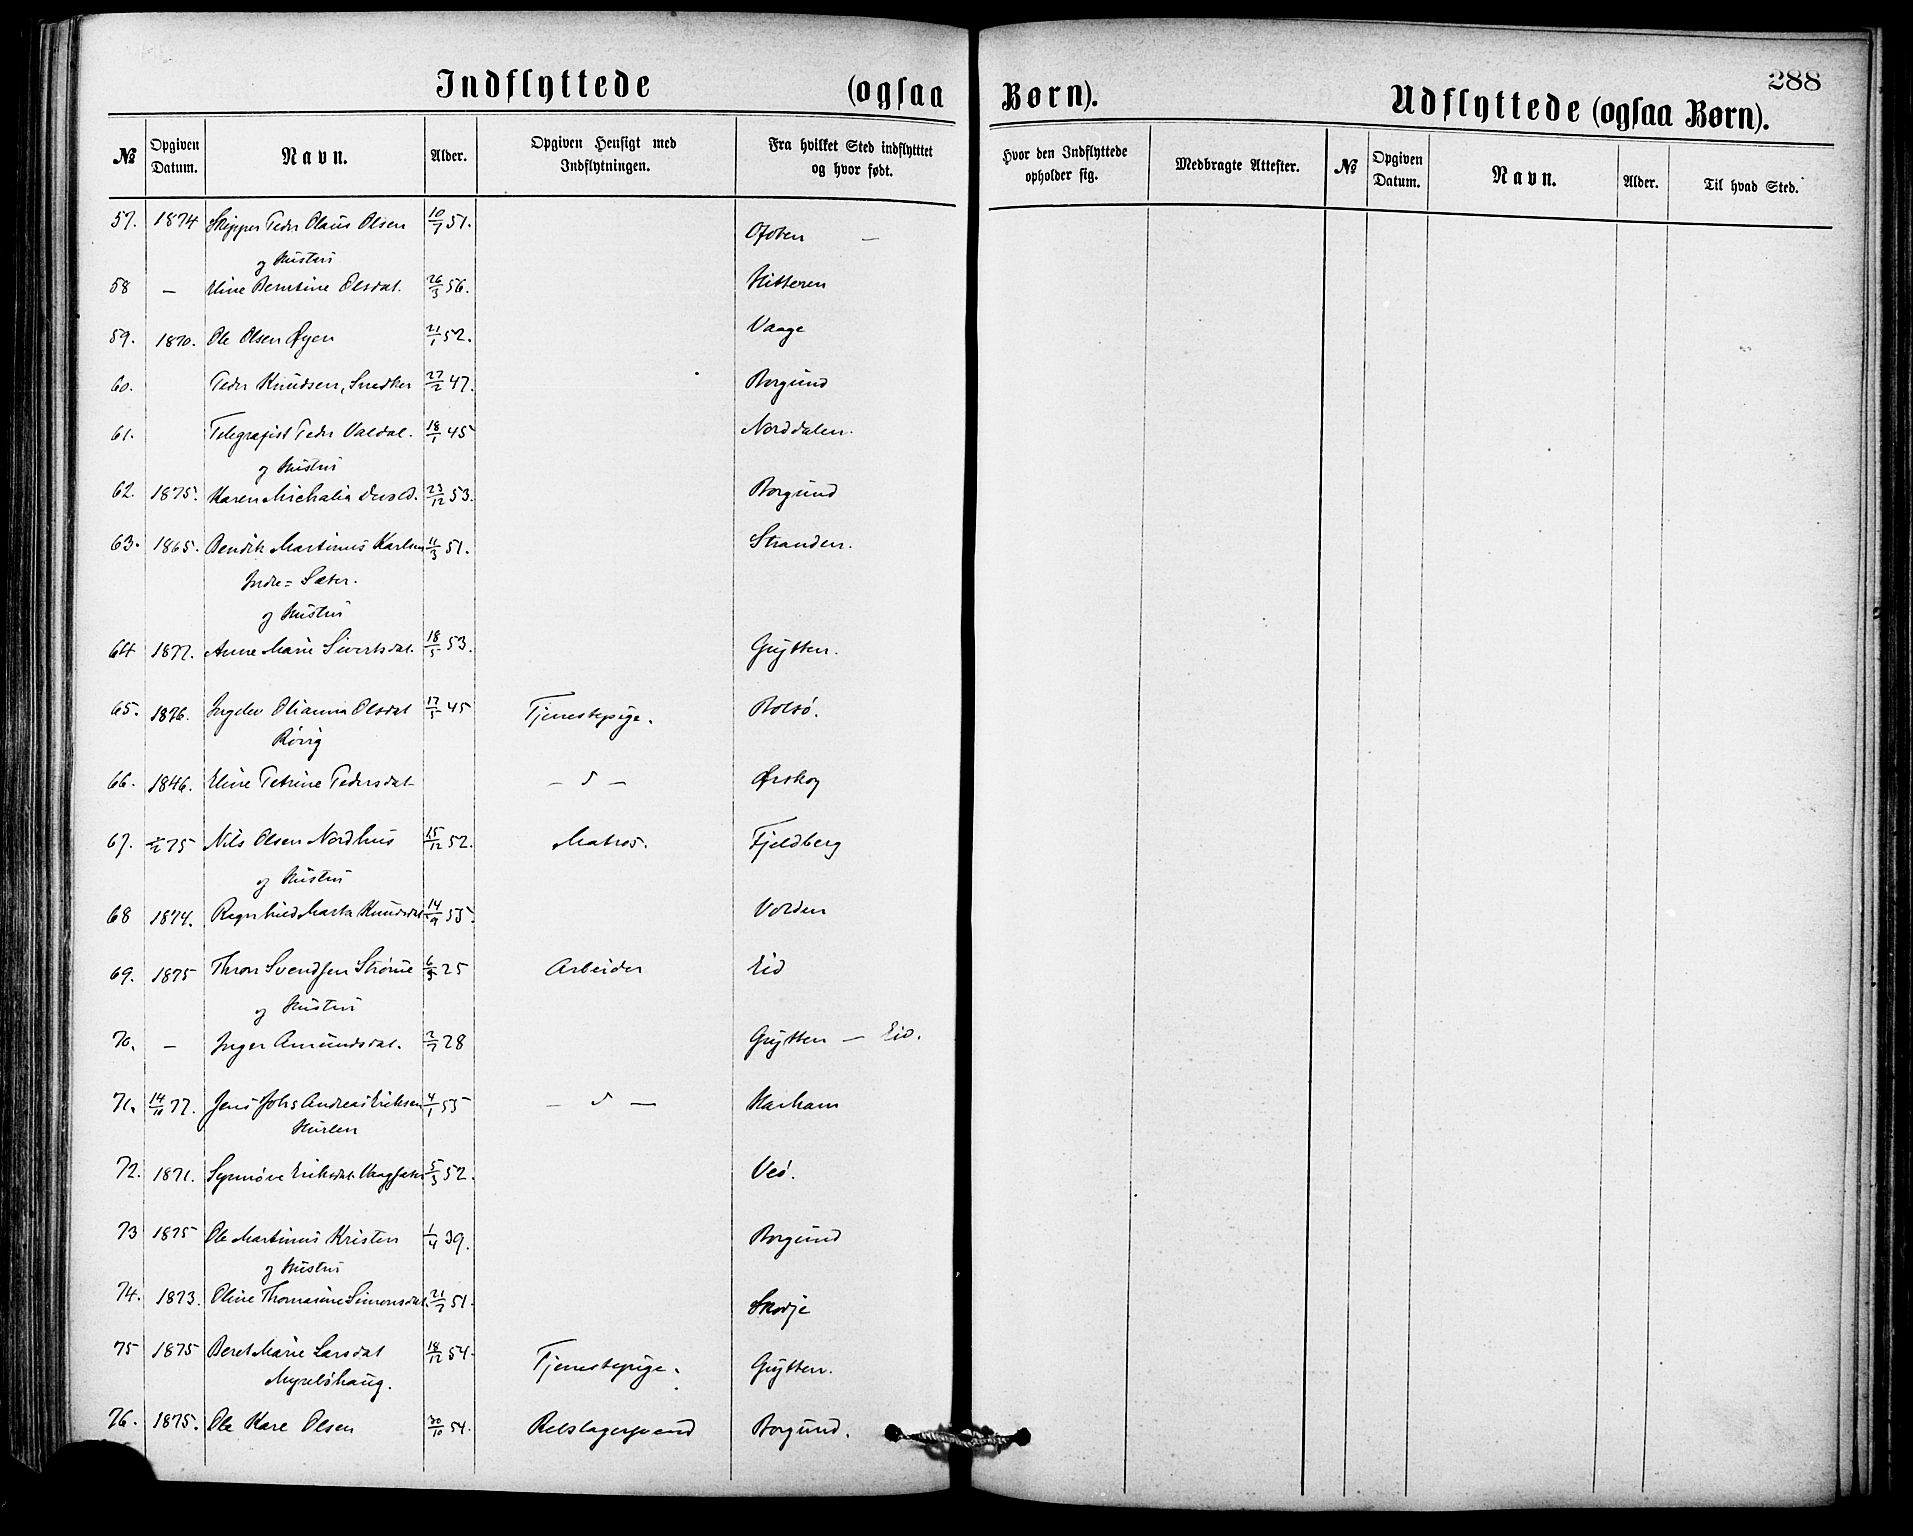 Indflyttede (ogsaa Børn).
288
Udflyttede (ogsaa Børn).
№ Opgiven Datum. Navn. Alder. Opgiven Hensigt med Indflytningen. Fra hvilket Sted indflytttet og hvor født. Hvor den Indflyttede opholder sig. Medbragte Attester. № Opgiven Datum. Navn. Alder. Til hvad Sted.
57. 1874 Skipper Peder Olaus Olsen 10/7 51. Ofoten —
og Hustru
58 — Eline Berntine Olsdat. 26/3 56. Hitteren
59. 1870. Ole Olsen Øyen 21/1 52. Vaage
60. Peder Knudsen, Snedker 27/2 47. Borgund
61. Telegrafist Peder Valdal. 18/1 45 Norddalen.
og Hustru
62. 1875. Karen Michalia Devold. 23/12 53. Borgund
63. 1865. Bendik Martinus Karlsen 11/3 51. Stranden.
Indre=Sæter.
og Hustru
64 1877. Anne Marie Sivertsdat. 18/5 53. Grytten.
65. 1876. Ingelev Olianna Olsdat 17/5 45 Tjenestepige. Bolsø.
Rövig
66. 1846. Eline Petrine Pedersdat — d — Ørskog
67. 75 Nils Olsen Nordhus 15/12 52. Matros. Fjeldberg
og Hustru
68 1874. Ragnhild Marta Knudsdat 14/9 55. Volden
69. 1875 Thron Svendsen Strøme 6/5 25 Arbeider Eid
og Hustru
70. — Inger Amundsdat. 2/7 28 Grytten — Eid.
71. 14/10 77. Jens Johs Andreas Eriksen 4/1 55 — d — Harham
Hurlen
72. 1871. Synnöve Eriksdat. Vaagsæter 5/3 52. Veö.
73 1875 Ole Martinus Kristen 1/4 39. Borgund
og Hustru
74. 1873. Oline Thomasine Simonsdat. 21/7 51. Skodje
75 1875 Beret Marie Larsdat 18/12 54. Tjenestepige. Grytten.
Myrebshaug.
76. 1875. Ole Kare Olsen 30/10 54. Rebslagersvend Borgund.